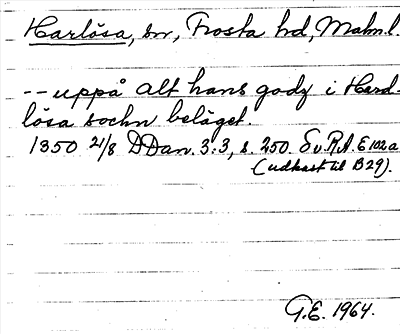 Harlösa, sn, Frosta hd, Malm.l.
-- uppå alt hans godz i Hard-
lösa sochn beläget.
1350 21/8 DDan. 3:3, s. 250. Sv.R.A. E 102a
(udkast til B29).
G.E. 1964.